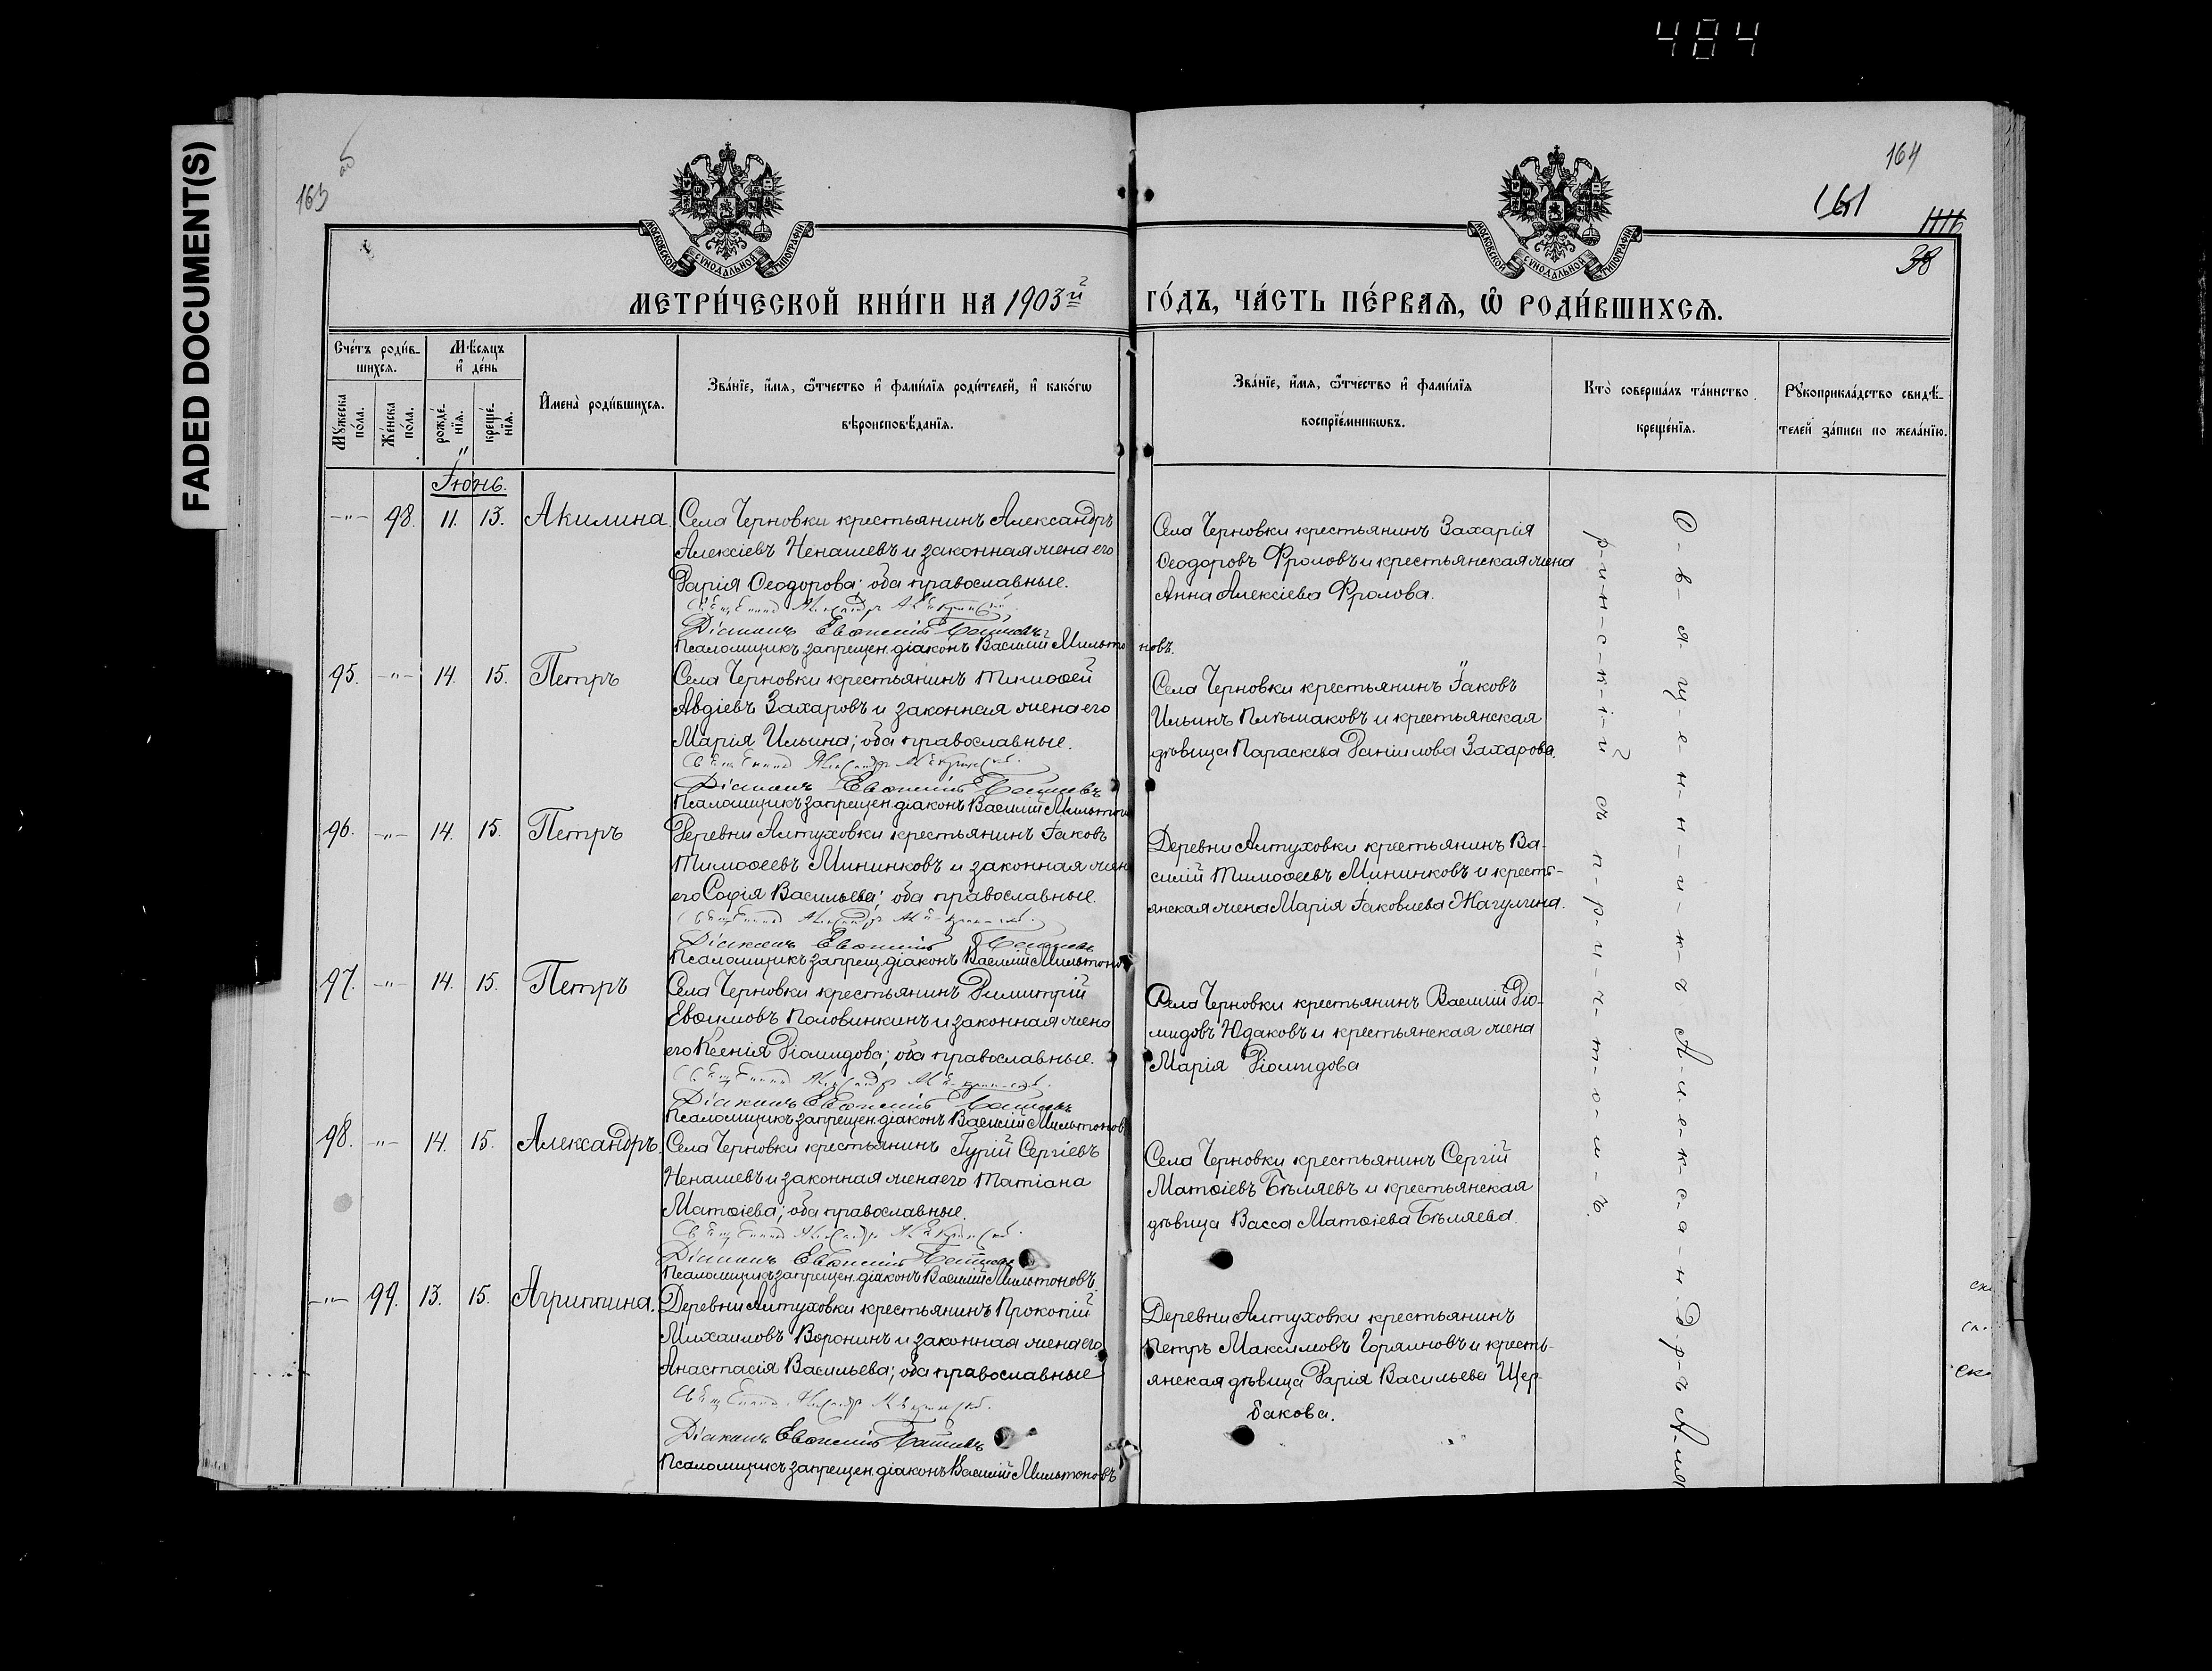 484
FADED DOCUMENT(S)
163
164
161
38
МОСКОВСКОЙ СѴНОДАЛЬНОЙ ТИПОГРАФІИ
МОСКОВСКОЙ СѴНОДАЛЬНОЙ ТИПОГРАФІИ
МЕТРИ́ЧЕСКОЙ КНИ́ГИ НА 1903й ГО́ДЪ, ЧА́СТЬ ПЕ́РВАЯ, Ѿ РОДИ́ВШИХСЯ.
Сче́тъ роди́в-
шихся.
Мѣ́сяцъ
и де́нь
Мꙋ́жеска по́ла.
Же́нска по́ла.
рожде́-нїя.
креще́-нїя.
Имена̀ роди́вшихся.
Зва́нїе, и́мя, ѻ҆́тчество и фами́лїя роди́телей, и како́гѡ
вѣроисповѣ́данїя.
Зва́нїе, и́мя, ѻ҆́тчество и фами́лїя
воспрїе́мникѡвъ.
Кто̀ соверша́лъ та́инство
креще́нїя.
Рꙋкоприкла́дство свидѣ́-
телей за́писи по жела́нїю.
Іюнь.
-"- 98. 11. 13. Акилина. Села Черновки крестьянинъ Александръ
Алексіевъ Ненашевъ и законная жена его
Дарія Ѳеодорова; оба православные.
Священникъ Александръ
Діаконъ Евѳимій
Псаломщикъ запрещен. діаконъ Василій Мильтоновъ.
Села Черновки крестьянинъ Захарія
Ѳеодоровъ Фроловъ и крестьянская жена
Анна Алексіева Фролова.
95. -"- 14. 15. Петръ Села Черновки крестьянинъ Тимоѳей
Авдіевъ Захаровъ и законная жена его
Марія Ильина; оба православные.
Священникъ Александръ
Діаконъ Евѳимій
Псаломщикъ запрещен. діаконъ Василій Мильтонов
Села Черновки крестьянинъ Іаковъ
Ильинъ Плѣшаковъ и крестьянская
дѣвица Параскева Даніилова Захарова.
96. -"- 14. 15. Петръ Деревни Алтуховки крестьянинъ Іаковъ
Тимоѳеевъ Мининковъ и законная жена
его Софія Васильева; оба православные.
Священникъ Александръ
Діаконъ Евѳимій
Псаломщикъ запрещ. діаконъ Василій Мильтонов
Деревни Алтуховки крестьянинъ Ва-
силій Тимоѳеевъ Мининковъ и кресть-
янская жена Марія Іаковлева Жагулина.
97. -"- 14. 15. Петръ Села Черновки крестьянинъ Димитрій
Евѳимовъ Половинкинъ и законная жена
его Ксенія Діомидова; оба православные.
Священникъ Александръ
Діаконъ Евѳимій
Псаломщикъ запрещен. діаконъ Василій Мильтонов
Села Черновки крестьянинъ Василій Діо-
мидовъ Юдаковъ и крестьянская жена
Марія Діомидова
98. -"- 14. 15. Александръ. Села Черновки крестьянинъ Гурій Сергіевъ
Ненашевъ и законная жена его Татіана
Матѳіева; оба православные.
Священникъ Александръ
Діаконъ Евѳимій
Псаломщикъ запрещен. діаконъ Василій Мильтоновъ.
Села Черновки крестьянинъ Сергій
Матѳіевъ Бѣляевъ и крестьянская
дѣвица Васса Матѳіева Бѣляева.
-"- 99. 13. 15. Агриппина. Деревни Алтуховки крестьянинъ Прокопій
Михаиловъ Воронинъ и законная жена его
Анастасія Васильева; оба православные
Священникъ Александръ
Діаконъ Евѳимій
Псаломщикъ запрещен. діаконъ Василій Мильтоновъ
Деревни Алтуховки крестьянинъ
Петръ Максимовъ Горяиновъ и кресть-
янская дѣвица Дарія Васильева Щер-
бакова.
С-в-я-щ-е-н-н-и-к-ъ А-л-е-к-с-а-н-д-р-ъ
р-и-н-с-к-і-й съ п-р-и-ч-т-о-м-ъ.